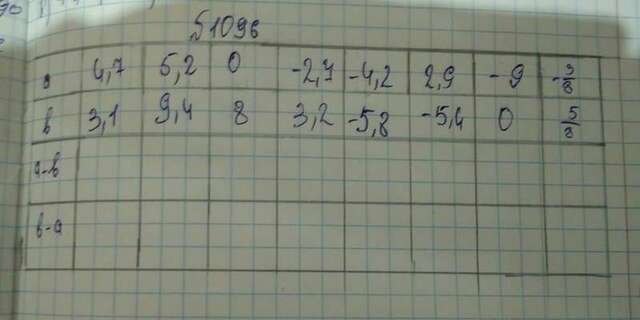 №1096
a 4,7 5,2 0 -2,7 -4,2 2,9 -9 -3/8
b 3,1 9,4 8 3,2 -5,8 -5,4 0 5/8
a-b
b-a